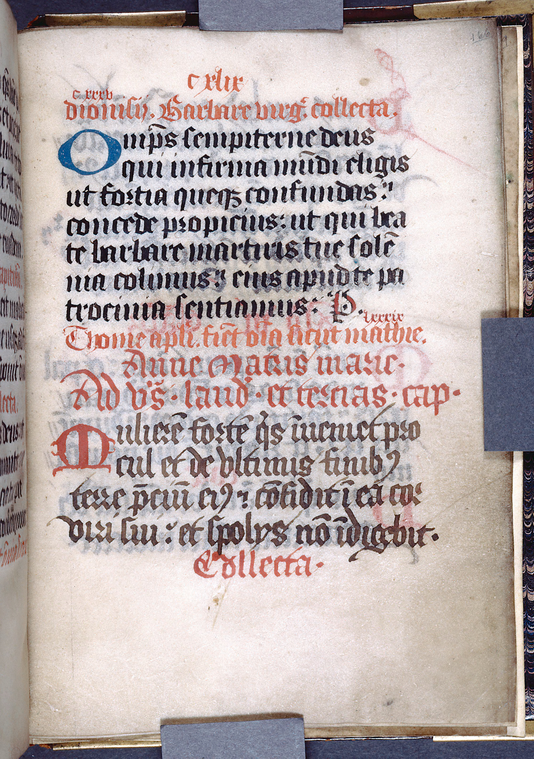 c xlix
c xxxv
dionisij. Barbare virg̃. collecta.
Om̄ps sempiterne deus
qui infirma mūdi eligis
ut fortia queqȝ confundas:
concede propicius: ut qui bea
te barbare martiris tue solē
nia colimus: eius apud te pa
trocinia sentiamus: P.
lxxxix
Thome apl̄i. fiēt oīa sicut mathie.
Anne Matris marie.
Ad v̄s. laud. et tercias. cap.
Mulierē fortē q̄s īueniet pro
cul et de vltimis finibꝰ
terre p̄ciū eiꝰ ⁊ cōfidit ī eā cor
viri sui: et spolijs nō īdigebit.
Collecta.